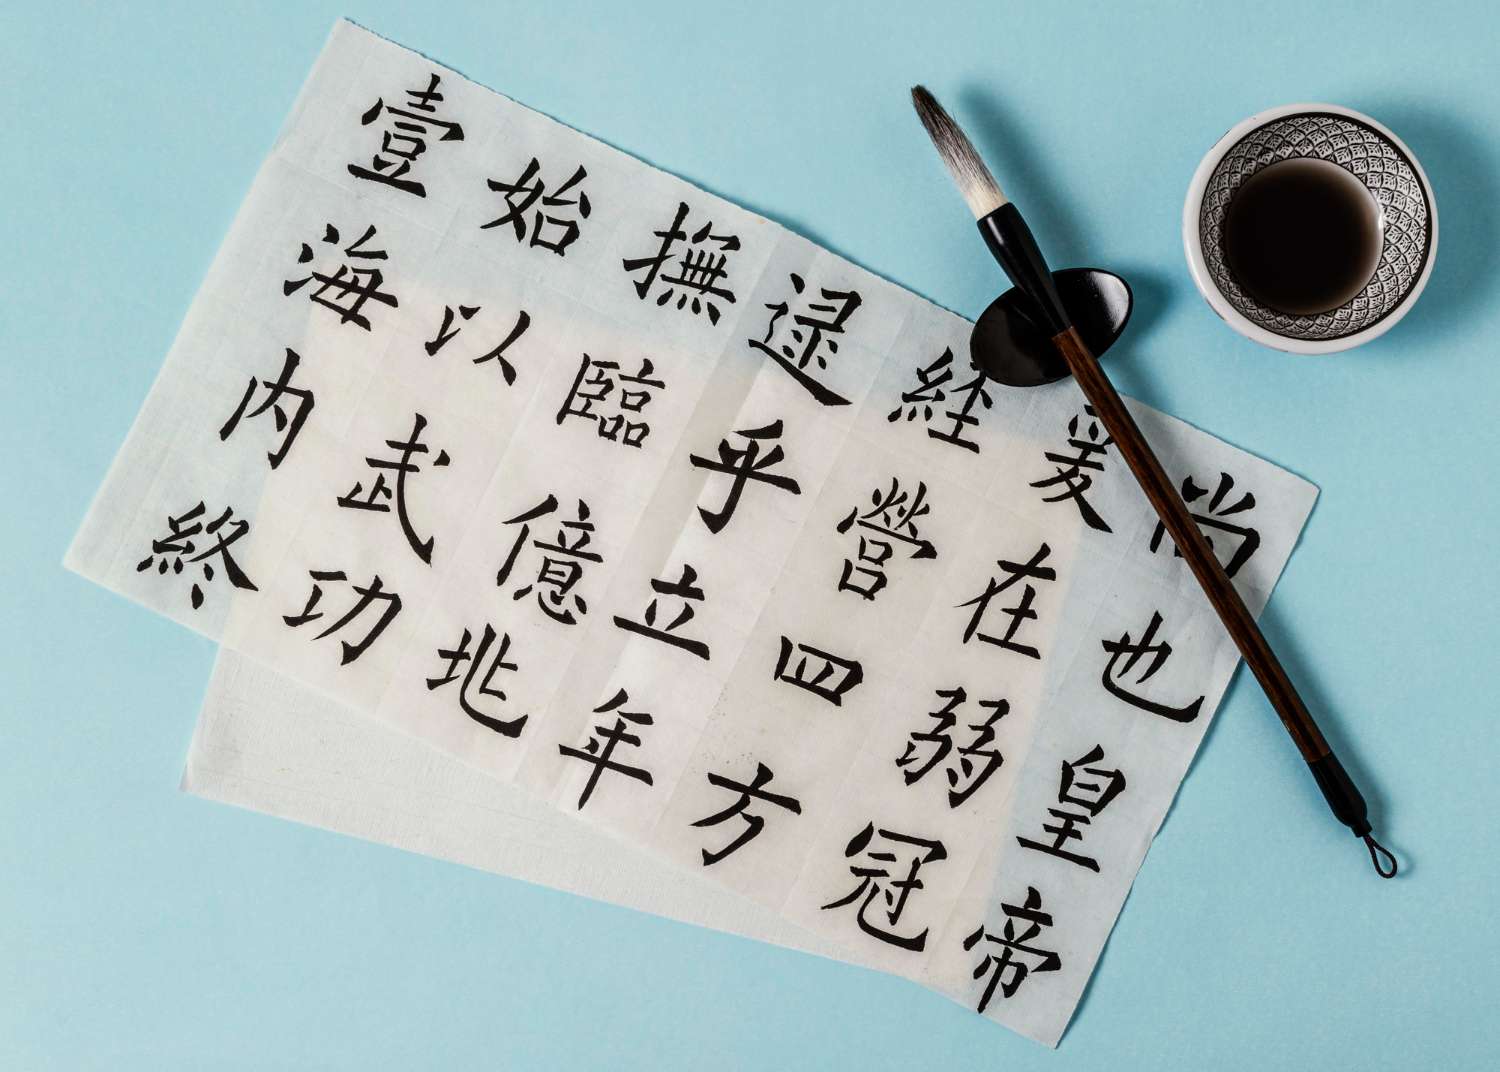 尚也皇帝
爰在弱冠
経營四方
逮乎立年
撫臨億兆
始以武功
壹海内終